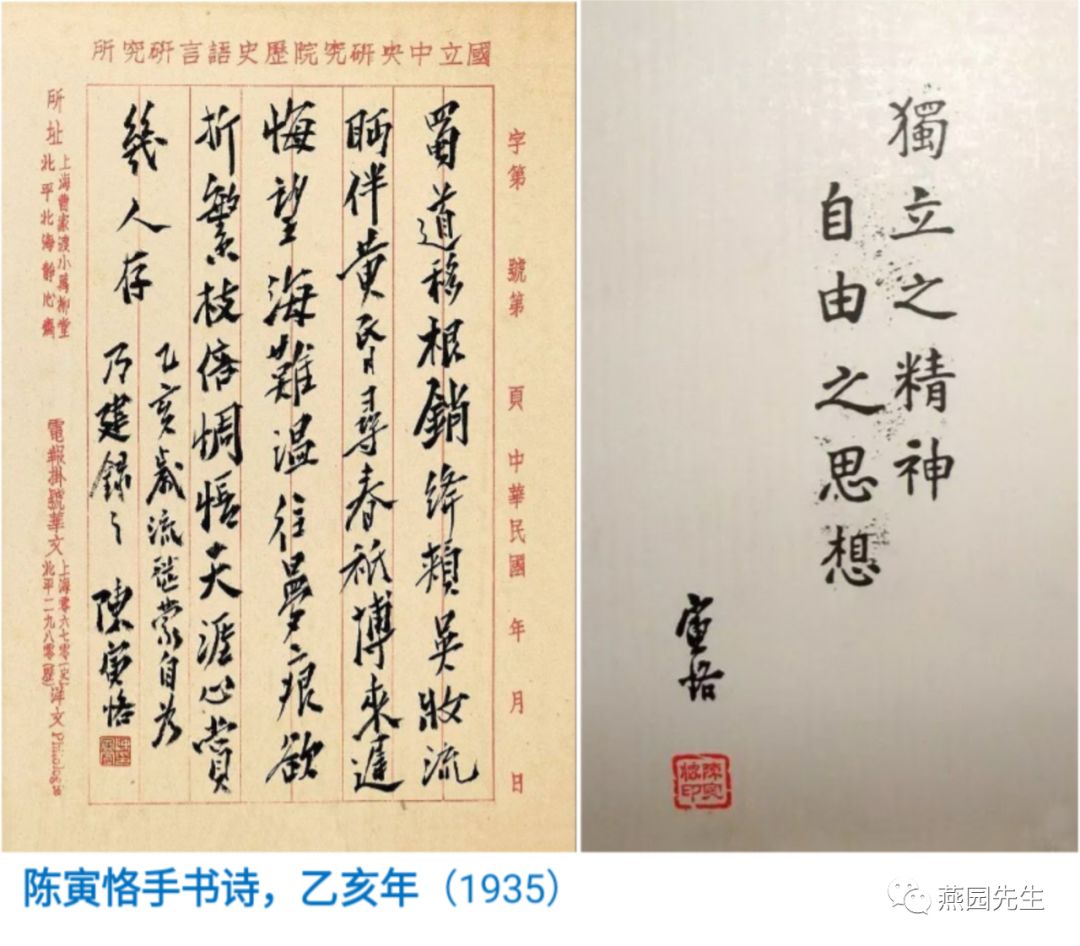 國立中央研究院歷史語言研究所
字第 號第 頁 中華民國 年 月 日
蜀道移根銷絳頰吳妝流
眄伴黃昏尋春祗博來遲
悔望海難溫往夢痕欲
折繁枝倍惆悵天涯心賞
幾人存
乙亥歲流蒙自為
乃建錄之 陳寅恪
所址
上海曹家渡小萬柳堂
北平北海靜心齋
電報掛號華文
上海零六七零
北平二九八零
洋文
獨立之精神
自由之思想
寅恪
陳寅恪印
陈寅恪手书诗，乙亥年（1935）
燕园先生